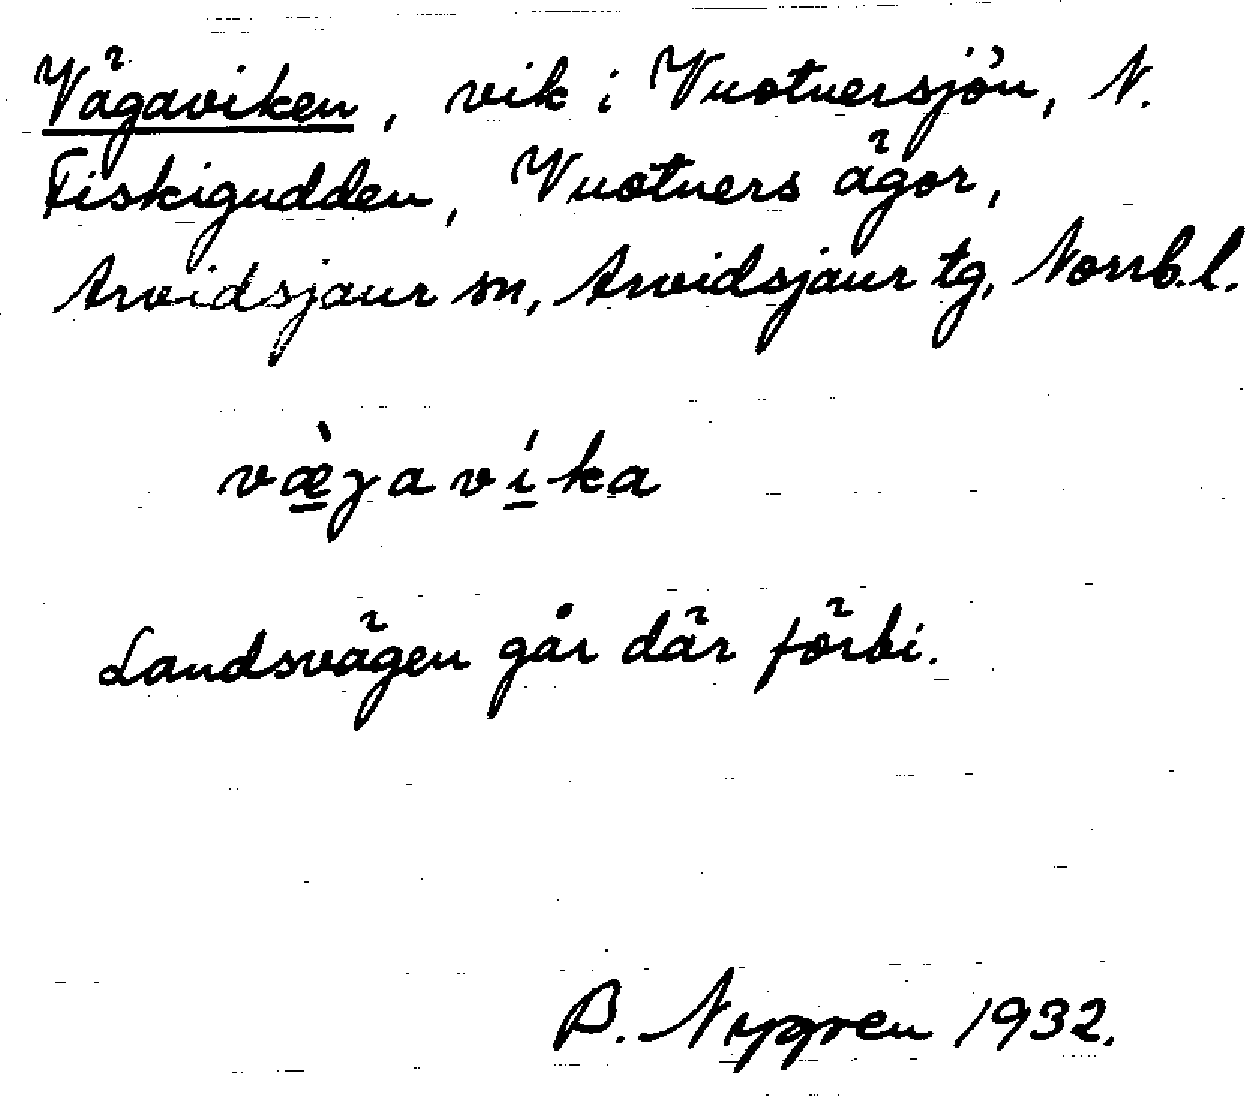 Vägaviken, vik i Vuotnersjön, N.
Fiskigudden, Vuotners ägor,
Arvidsjaur sn, Arvidsjaur tg, Norrb.l.
væ̀gavíka
Landsvägen går där förbi.
B. Nygren 1932.